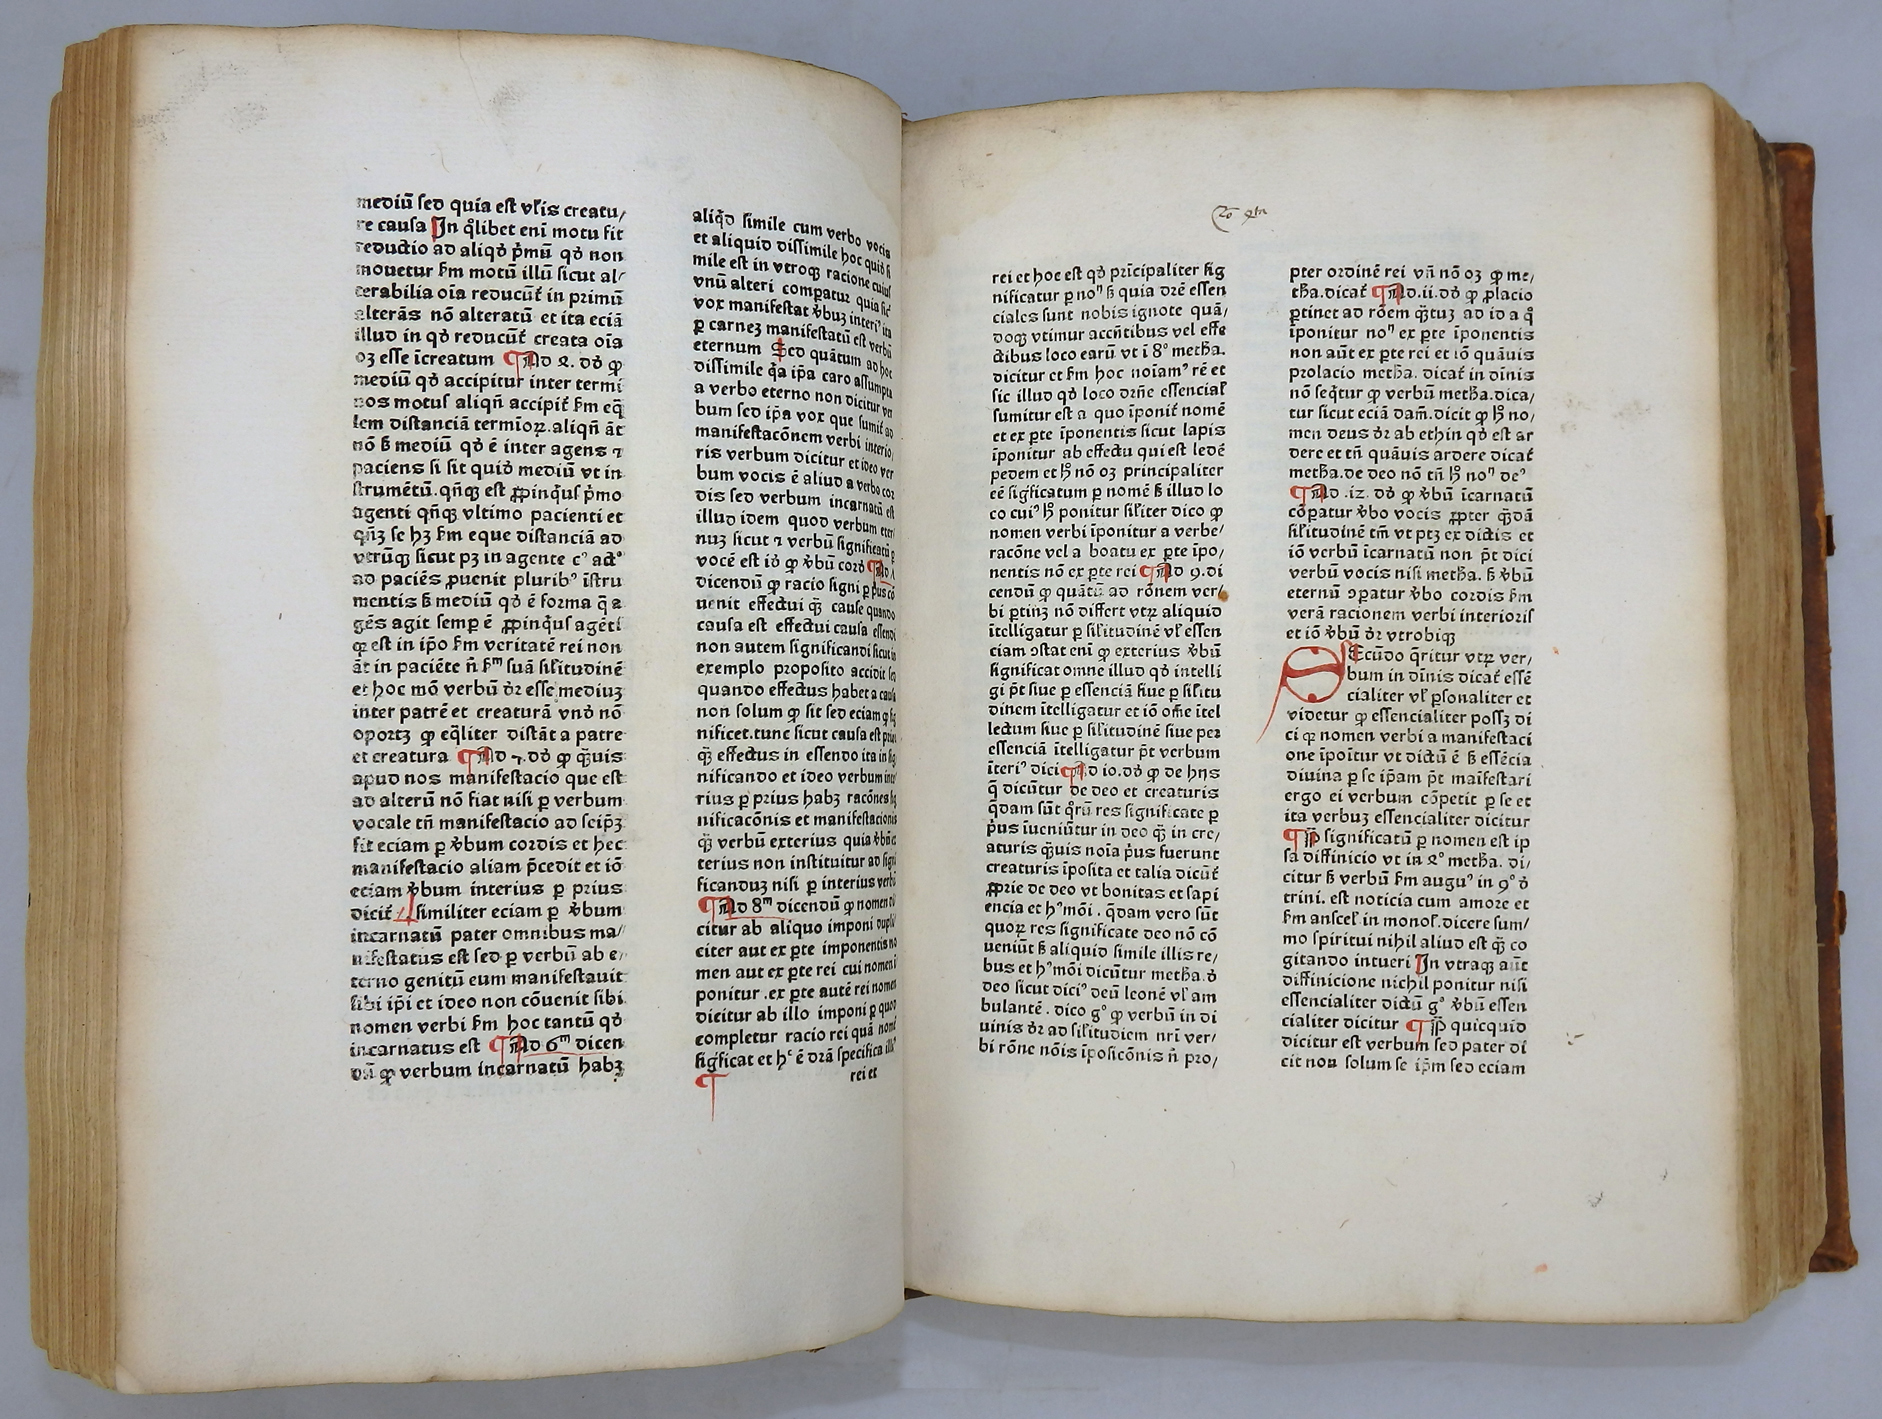 mediū sed quia est vl̄is creatu/
re causa In q̊libet enī motu fit
reductio ad aliqd̄ p̄mū qd̄ non
mouetur ẜm motū illū sicut al/
terabilia oīa reducūt̄ in primū
alterās nō alteratū et ita eciā
illud in qd̄ reducūt̄ creata oīa
oꝫ esse īcreatum ¶ Ad 2. dd̄ ꝙ
mediū qd̄ accipitur inter termi
nos motus aliqn̄ accipit̄ ẜm eq̄
lem distanciā termioꝝ. aliqn̄ āt
nō ẜ mediū qd̄ ē inter agens ⁊
paciens si sit quid mediū vt in
strumētū. qn̄qꝫ est ꝓpinq̊us p̄mo
agenti qn̄qꝫ vltimo pacienti et
qn̄qꝫ se hꝫ ẜm eque distanciā ad
vtrūqꝫ sicut pꝫ in agente cꝰ actꝰ
ad paciēs ꝓuenit pluribꝰ īstru
mentis ẜ mediū qd̄ ē forma q̄ a
gēs agit semꝑ ē ꝓpinq̊us agēti
ꝙ est in ip̄o ẜm veritatē rei non
āt in paciēte n̄ ẜm suā sil̄itudinē
et hoc mō verbū dr̄ esse mediuꝫ
inter patrē et creaturā vnd̄ nō
oportꝫ ꝙ eq̄liter distāt a patre
et creatura ¶ Ad ⁊. dd̄ ꝙ q̄uis
apud nos manifestacio que est
ad alterū nō fiat nisi ꝑ verbum
vocale tn̄ manifestacio ad seip̄ꝫ
fit eciam ꝑ v̄bum cordis et hec
manifestacio aliam p̄cedit et iō
eciam v̄bum interius ꝑ prius
dicit̄ similiter eciam ꝑ v̄bum
incarnatū pater omnibus ma//
nifestatus est sed ꝑ verbū ab e/
terno genitū eum manifestauit
sibi ip̄i et ideo non cōuenit sibi
nomen verbi ẜm hoc tantū qd̄
incarnatus est ¶ Ad 6m dicen
dū ꝙ verbum incarnatū habꝫ
aliqd̄ simile cum verbo vocis
et aliquid dissimile hoc quid̄ si
mile est in vtroqꝫ racione cuius
vnū alteri comꝑatur quia sic̄
vox manifestat v̄buꝫ interiꝰ ita
ꝑ carneꝫ manifestatū est verbū
eternum Sed quātum ad hoc
dissimile q̄a ip̄a caro assumpta
a verbo eterno non dicitur ver
bum sed ip̄a vox que sumit̄ ad
manifestacōnem verbi interio/
ris verbum dicitur et ideo ver
bum vocis ē aliud a verbo cor
dis sed verbum incarnatū est
illud idem quod verbum eter/
nuꝫ sicut ⁊ verbū significatū ꝑ
vocē est id̄ ꝙ v̄bū cord̄ ¶ Ad
dicendū ꝙ racio signi ꝑ pꝰus cō
uenit effectui q̄ꝫ cause quando
causa est effectui causa essendi
non autem significandi sicut in
exemplo proposito accidit sed
quando effectus habet a causa
non solum ꝙ sit sed eciam ꝙ sig
nificet. tunc sicut causa est prius
q̄ꝫ effectus in essendo ita in sig
nificando et ideo verbum inte
rius ꝑ prius habꝫ racōnes sig
nificacōnis et manifestacionis
q̄ꝫ verbū exterius quia v̄bū ex
terius non instituitur ad signi
ficanduꝫ nisi ꝑ interius verbū
¶ Ad 8m dicendū ꝙ nomen di
citur ab aliquo imponi dupli/
citer aut ex ꝑte imponentis no
men aut ex ꝑte rei cui nomen i
ponitur. ex ꝑte autē rei nomen
dicitur ab illo imponi ꝑ quod
completur racio rei quā nomē
sigficat et hꝰ ē drā specifica illiꝰ
¶
rei et
2o qtn
rei et hoc est qd̄ prīcipaliter sig
nificatur ꝑ noⁿ ẜ quia drē essen
ciales sunt nobis ignote quā/
doqꝫ vtimur accn̄tibus vel effe
ctibus loco earū vt ī 8o metha.
dicitur et ẜm hoc noīamꝰ rē et
sic illud qd̄ loco drn̄e essencial̄
sumitur est a quo īponit̄ nomē
et ex ꝑte īponentis sicut lapis
īponitur ab effectu qui est ledē
pedem et hꝰ nō oꝫ principaliter
eē sigficatum ꝑ nomē ẜ illud lo
co cuiꝰ hꝰ ponitur sil̄iter dico ꝙ
nomen verbi īponitur a verbe/
racōne vel a boatu ex ꝑte īpo/
nentis nō ex ꝑte rei ¶ Ad 9. di
cendū ꝙ quātū ad rōnem ver/
bi ꝑtinꝫ nō differt vtꝝ aliquid
ītelligatur ꝑ sil̄itudinē vl̄ essen
ciam ↄstat enī ꝙ exterius v̄bū
significat omne illud qd̄ intelli
gi pt̄ siue ꝑ essenciā siue ꝑ sil̄itu
dinem ītelligatur et iō om̄e ītel
lectum siue ꝑ sil̄itudinē siue per
essenciā ītelligatur pt̄ verbum
īteriꝰ dici ¶ Ad 10. dd̄ ꝙ de hijs
q̄ dicūtur de deo et creaturis
q̄dam sūt q̊rū res significate ꝑ
pꝰus īueniūtur in deo q̄ꝫ in cre/
aturis q̄uis noīa pꝰus fuerunt
creaturis īposita et talia dicūt̄
ꝓprie de deo vt bonitas et sapi
encia et hꝰmōi. q̄dam vero sūt
quoꝝ res significate deo nō cō
ueniūt ẜ aliquid simile illis re/
bus et hꝰmōi dicūtur metha. d̄
deo sicut diciꝰ deū leonē vl̄ am
bulantē. dico gͦ ꝙ verbū in di
uinis dr̄ ad sil̄itudiem nr̄i ver/
bi rōne nōis īposicōnis n̄ pro/
pter ordinē rei vn̄ nō oꝫ ꝙ me/
tha. dicat̄ ¶ Ad .ii. dd̄ ꝙ ꝓlacio
ꝑtinet ad rōem q̄tuꝫ ad id a q̊
īponitur noⁿ ex ꝑte īponentis
non aūt ex ꝑte rei et iō quāuis
prolacio metha. dicat̄ in dīnis
nō seq̄tur ꝙ verbū metha. dica/
tur sicut eciā dam̄. dicit ꝙ hꝰ no/
men deus dr̄ ab ethin qd̄ est ar
dere et tn̄ quāuis ardere dicat̄
metha. de deo nō tn̄ hꝰ noⁿ deꝰ
¶ Ad .12. dd̄ ꝙ v̄bū īcarnatū
cōꝑatur v̄bo vocis ꝓpter q̄dā
sil̄itudinē tm̄ vt ptꝫ ex dictis et
iō verbū īcarnatū non pt̄ dici
verbū vocis nisi metha. ẜ v̄bū
eternū ↄꝑatur v̄bo cordis ẜm
verā racionem verbi interioris
et iō v̄bū dr̄ vtrobiqꝫ
SEcūdo q̄ritur vtꝝ ver/
bum in dīnis dicat̄ essē
cialiter vl̄ ꝑsonaliter et
videtur ꝙ essencialiter possꝫ di
ci ꝙ nomen verbi a manifestaci
one īpoītur vt dictū ē ẜ essēcia
diuina ꝑ se ip̄am pt̄ maīfestari
ergo ei verbum cōpetit ꝑ se et
ita verbuꝫ essencialiter dicitur
¶ P̄ significatū ꝑ nomen est ip
sa diffinicio vt in 2o metha. di/
citur ẜ verbū ẜm auguꝰ in 9o d̄
trini. est noticia cum amore et
ẜm ansel̄ in monol̄. dicere sum/
mo spiritui nihil aliud est q̄ꝫ co
gitando intueri In vtraqꝫ aūt
diffinicione nichil ponitur nisi
essencialiter dictū gͦ v̄bū essen
cialiter dicitur ¶ P̄ quicquid
dicitur est verbum sed pater di
cit non solum se ip̄m sed eciam